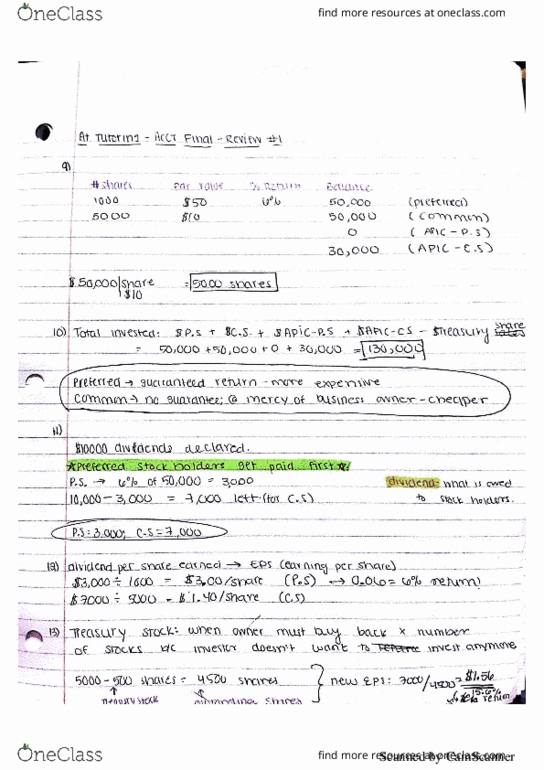 OneClass
find more resources at oneclass.com
At Tutoring - ACCT Final - Review #1
9)
# shares Par Value % Return Balance
1000 $50 6% 50,000 (preferred)
5000 $10 50,000 (common)
0 (APIC - P.S)
30,000 (APIC - C.S)
$50,000/share = 5000 shares
$10
10) Total invested: $P.S + $C.S + $APIC-P.S + $APIC-CS - $treasury share
= 50,000 + 50,000 + 0 + 30,000 = 130,000
Preferred → guaranteed return - more expensive
Common → no guarantee; @ mercy of business owner - cheaper
11)
$10000 dividends declared.
★Preferred stock holders get paid first★
P.S. → 6% of 50,000 = 3000
dividend: what is owed
10,000 - 3,000 = 7,000 left (for C.S)
to stock holders.
P.S = 3,000; C.S = 7,000
12) dividend per share earned → EPS (earning per share)
$3,000 ÷ 1000 = $3.00/share (P.S) → 0.06 = 6% return!
$7000 ÷ 5000 = $1.40/share (C.S)
13) Treasury stock: when owner must buy back x number
of stocks b/c investor doesn't want to invest anymore
5000 - 500 shares = 4500 shares
new EPS: 7000/4500 = $1.56
15.6%
return
treasury stock outstanding shares
OneClass
find more resources at oneclass.com
Scanned by CamScanner